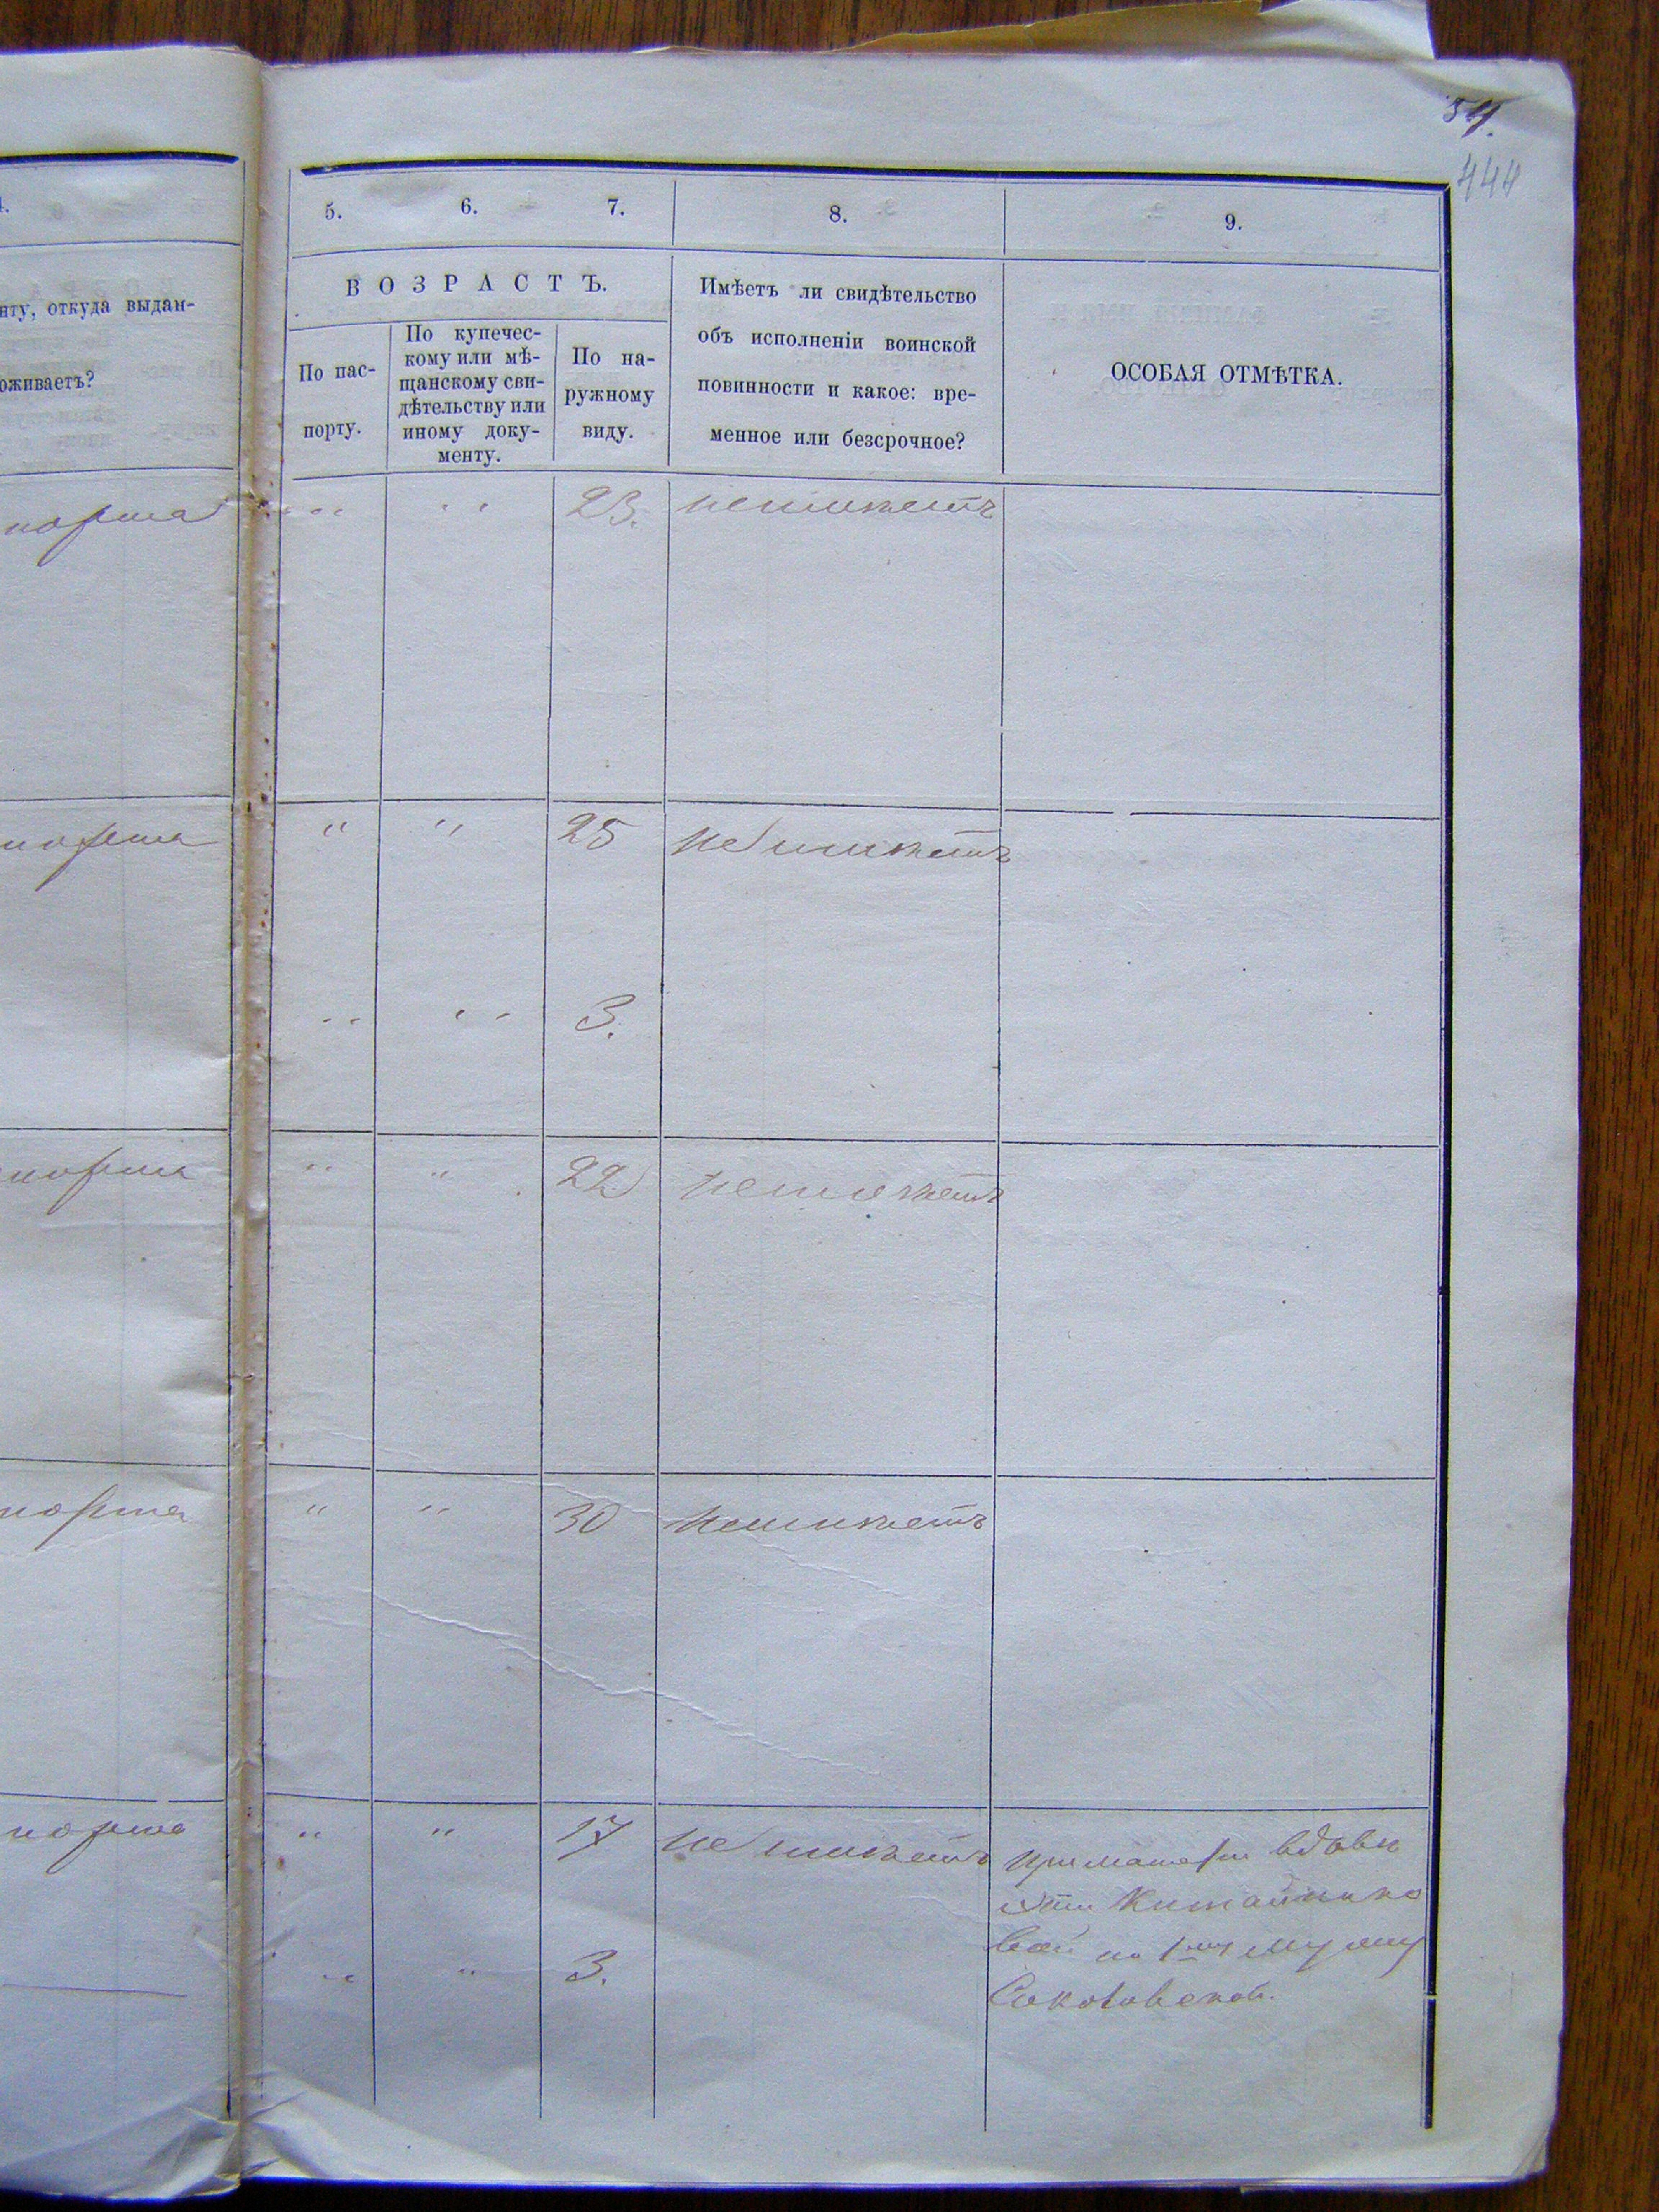 54.
444
4. 5. 6. 7. 8. 9.
нту, откуда выдан-
оживаетъ?
ВОЗРАСТЪ.
По пас-
порту.
По купечес-
кому или мѣ-
щанскому сви-
дѣтельству или
иному доку-
менту.
По на-
ружному
виду.
Имѣетъ ли свидѣтельство
объ исполненіи воинской
повинности и какое: вре-
менное или безсрочное?
ОСОБАЯ ОТМѢТКА.
порта " " 23. неимѣетъ
порта " " 25 не имѣетъ
" " 3.
порта " " 22 неимѣетъ
порта " " 30 неимѣетъ
порта " " 17 не имѣетъ
при матери вдовѣ
по 1му мужу
" " 3.